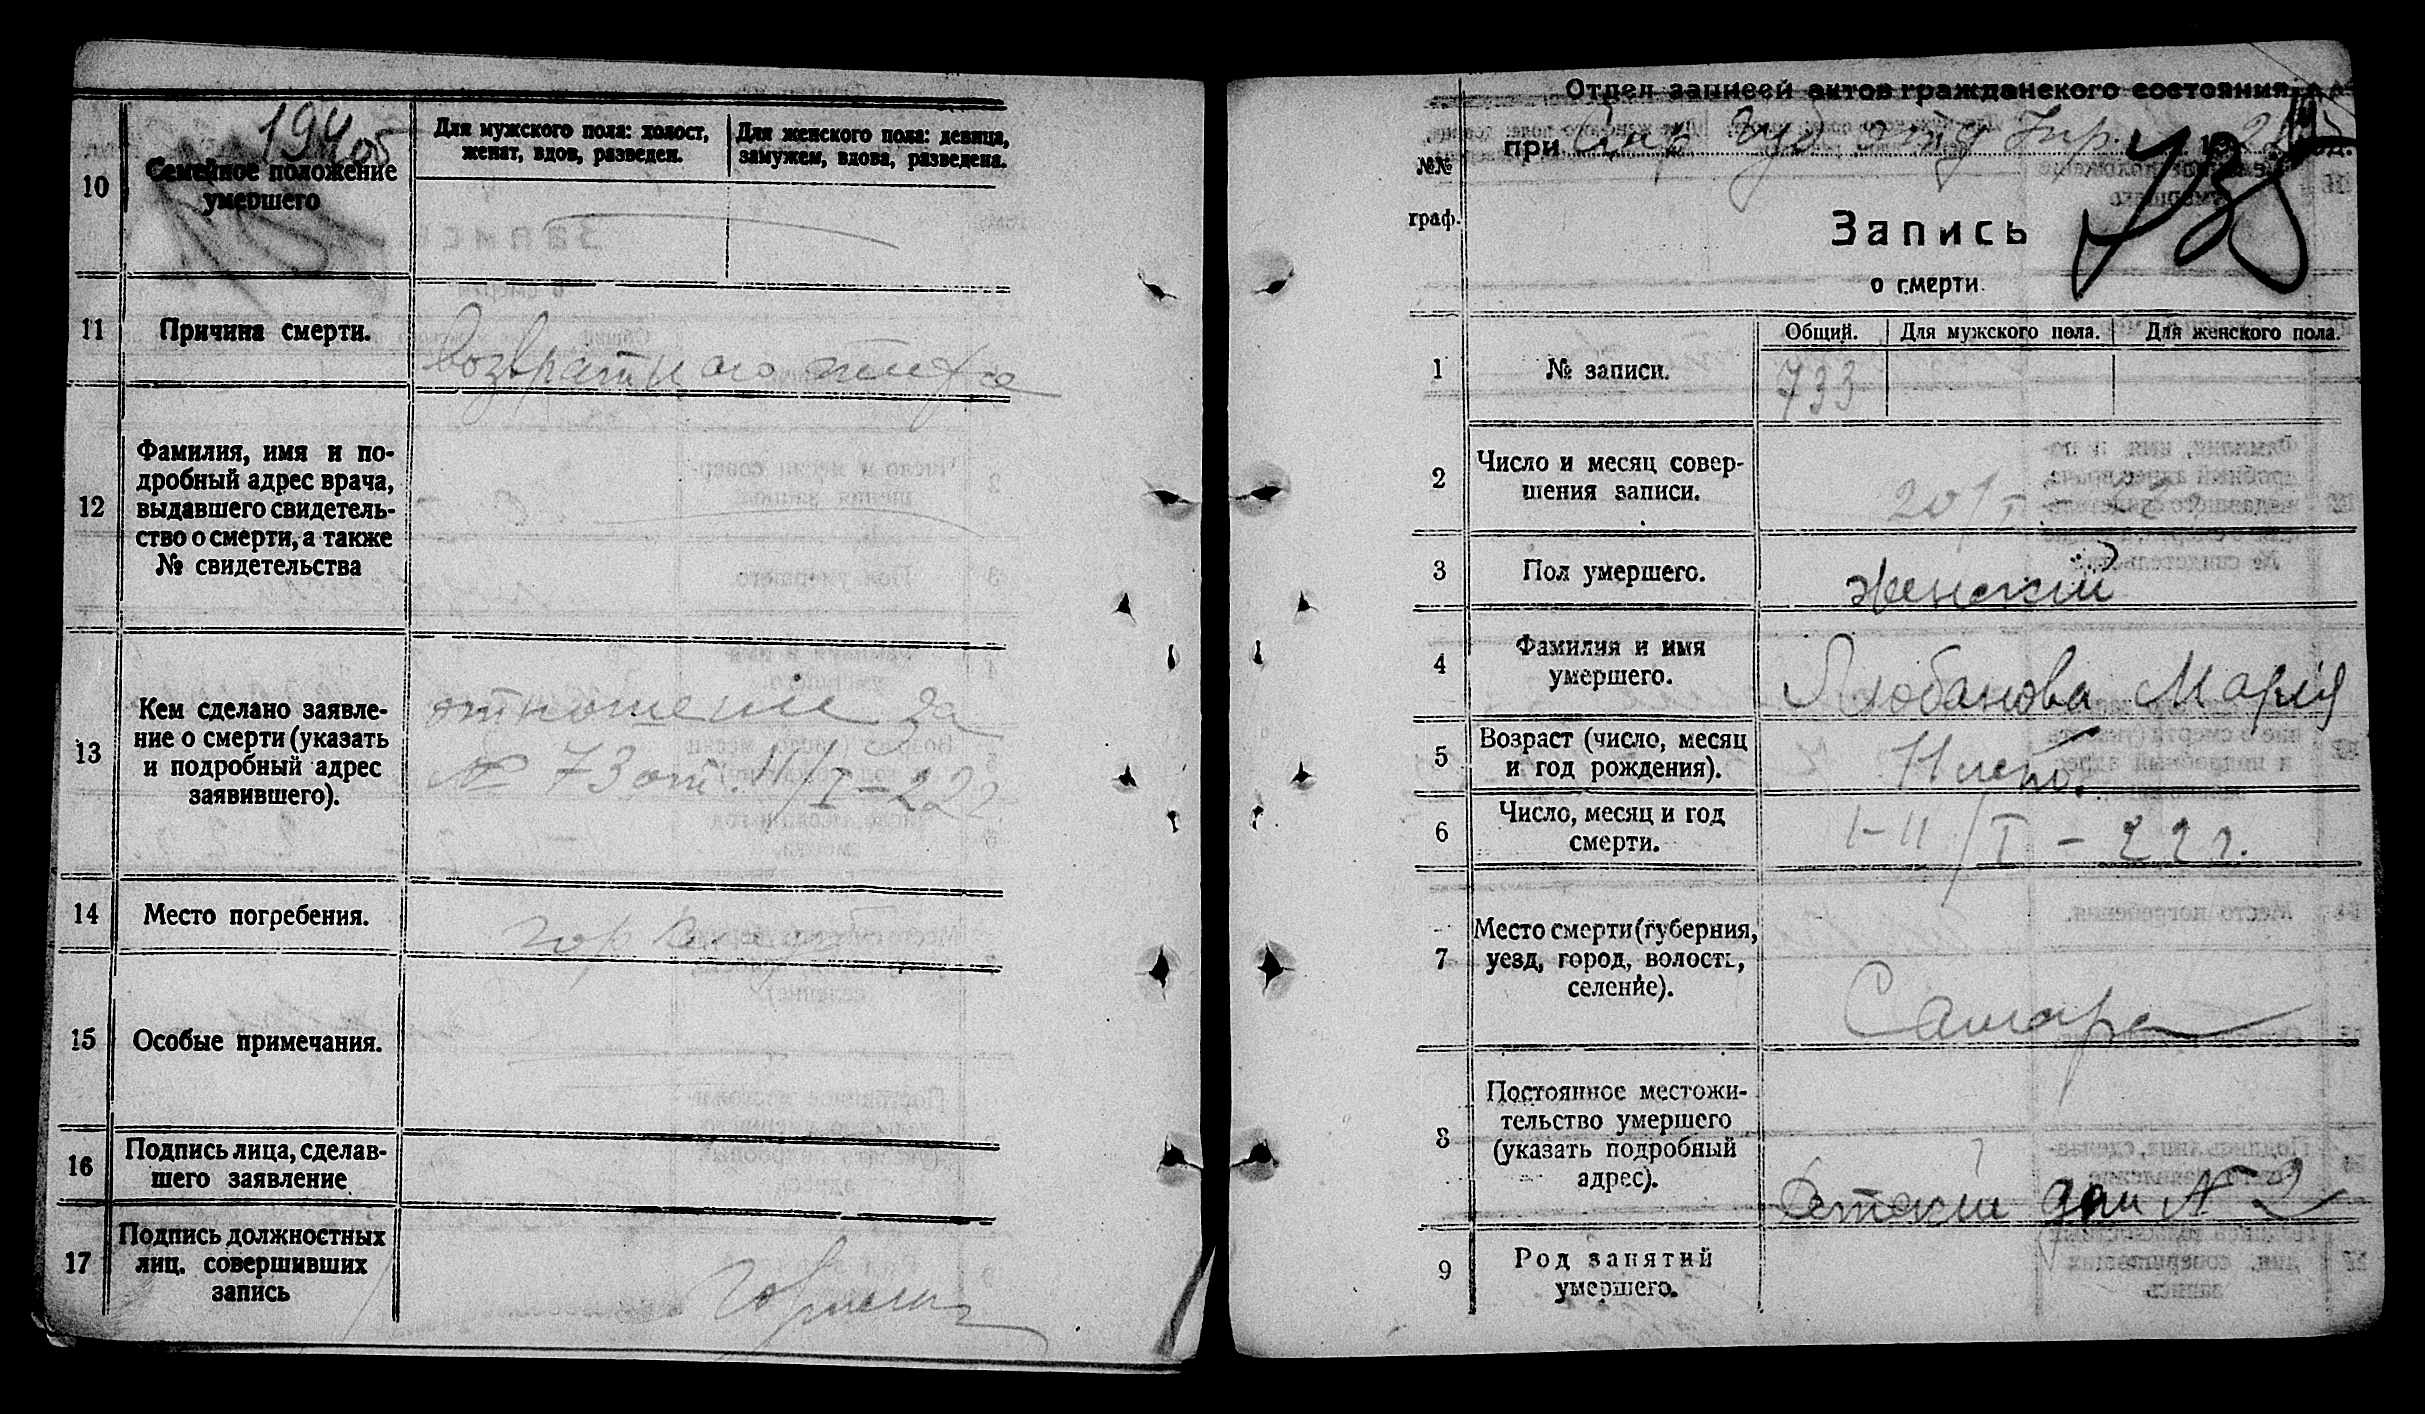 194об
10
Семейное положение
умершего
Для мужского пола: холост,
женат, вдов, разведен.
Для женского пола: девица,
замужем, вдова, разведена.
11
Причина смерти.
Возвратного тифа
12
Фамилия, имя и по-
дробный адрес врача,
выдавшего свидетель-
ство о смерти, а также
№ свидетельства
13
Кем сделано заявле-
ние о смерти (указать
и подробный адрес
заявившего).
отношение за
№ 73 от. 11/I-22 г
14
Место погребения.
гор
15
Особые примечания.
16
Подпись лица, сделав-
шего заявление
17
Подпись должностных
лиц, совершивших
запись
Отдел записей актов гражданского состояния
№№
граф.
при Сам Губ отд Упр. 192
733
Запись
о смерти.
1
№ записи.
Общий.
Для мужского пола.
Для женского пола.
733
2
Число и месяц совер-
шения записи.
20/I
3
Пол умершего.
женский
4
Фамилия и имя
умершего.
Любанова Мария
5
Возраст (число, месяц
и год рождения).
11 лет.
6
Число, месяц и год
смерти.
1-11/I - 22 г.
7
Место смерти (губерния,
уезд, город, волость,
селение).
Самара
8
Постоянное местожи-
тельство умершего
(указать подробный
адрес).
Детский дом № 2
9
Род занятий
умершего.